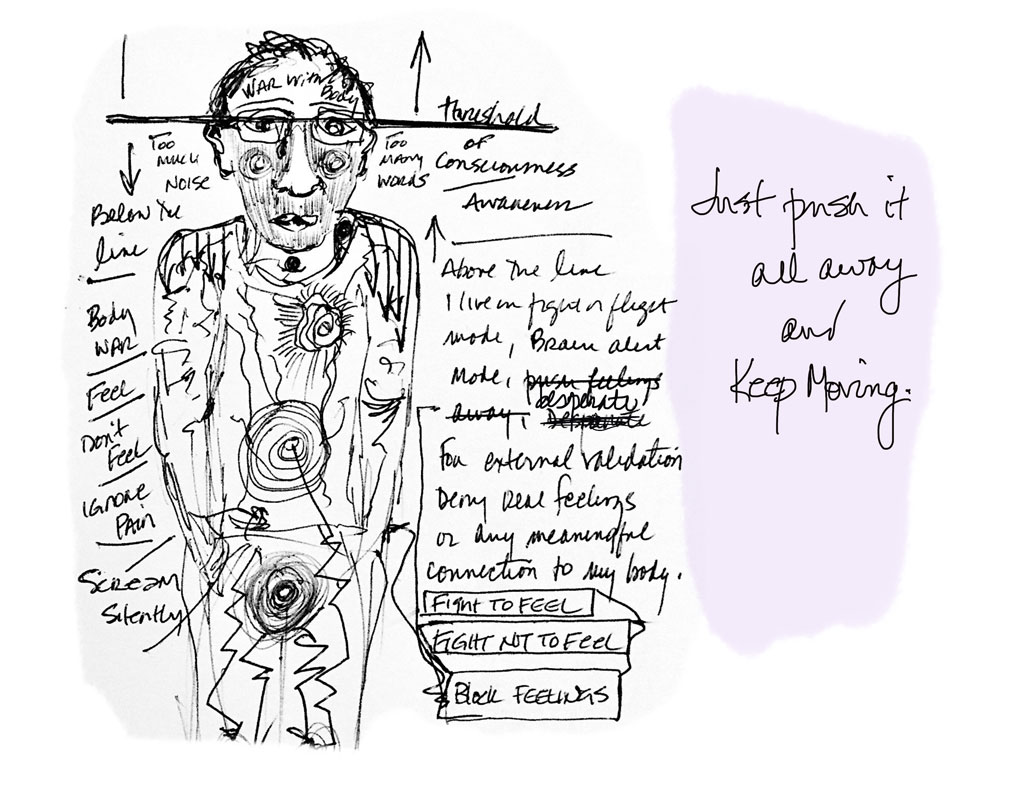 WAR WITH
Body
threshold
of
Consciousness
Awareness
Too
Much
NOISE
Too
MANY
WORDS
Below the
line
Body
WAR
Feel
Don't
Feel
IGNORE
PAIN
SCREAM
Silently
Above the line
I live in fight or flight
mode, Brain alert
Mode, push feelings
away, desperate
For external validation
Deny Real feelings
or any meaningful
connection to my body.
FIGHT TO FEEL
FIGHT NOT TO FEEL
Block FEELINGS
Just push it
all away
and
Keep Moving.